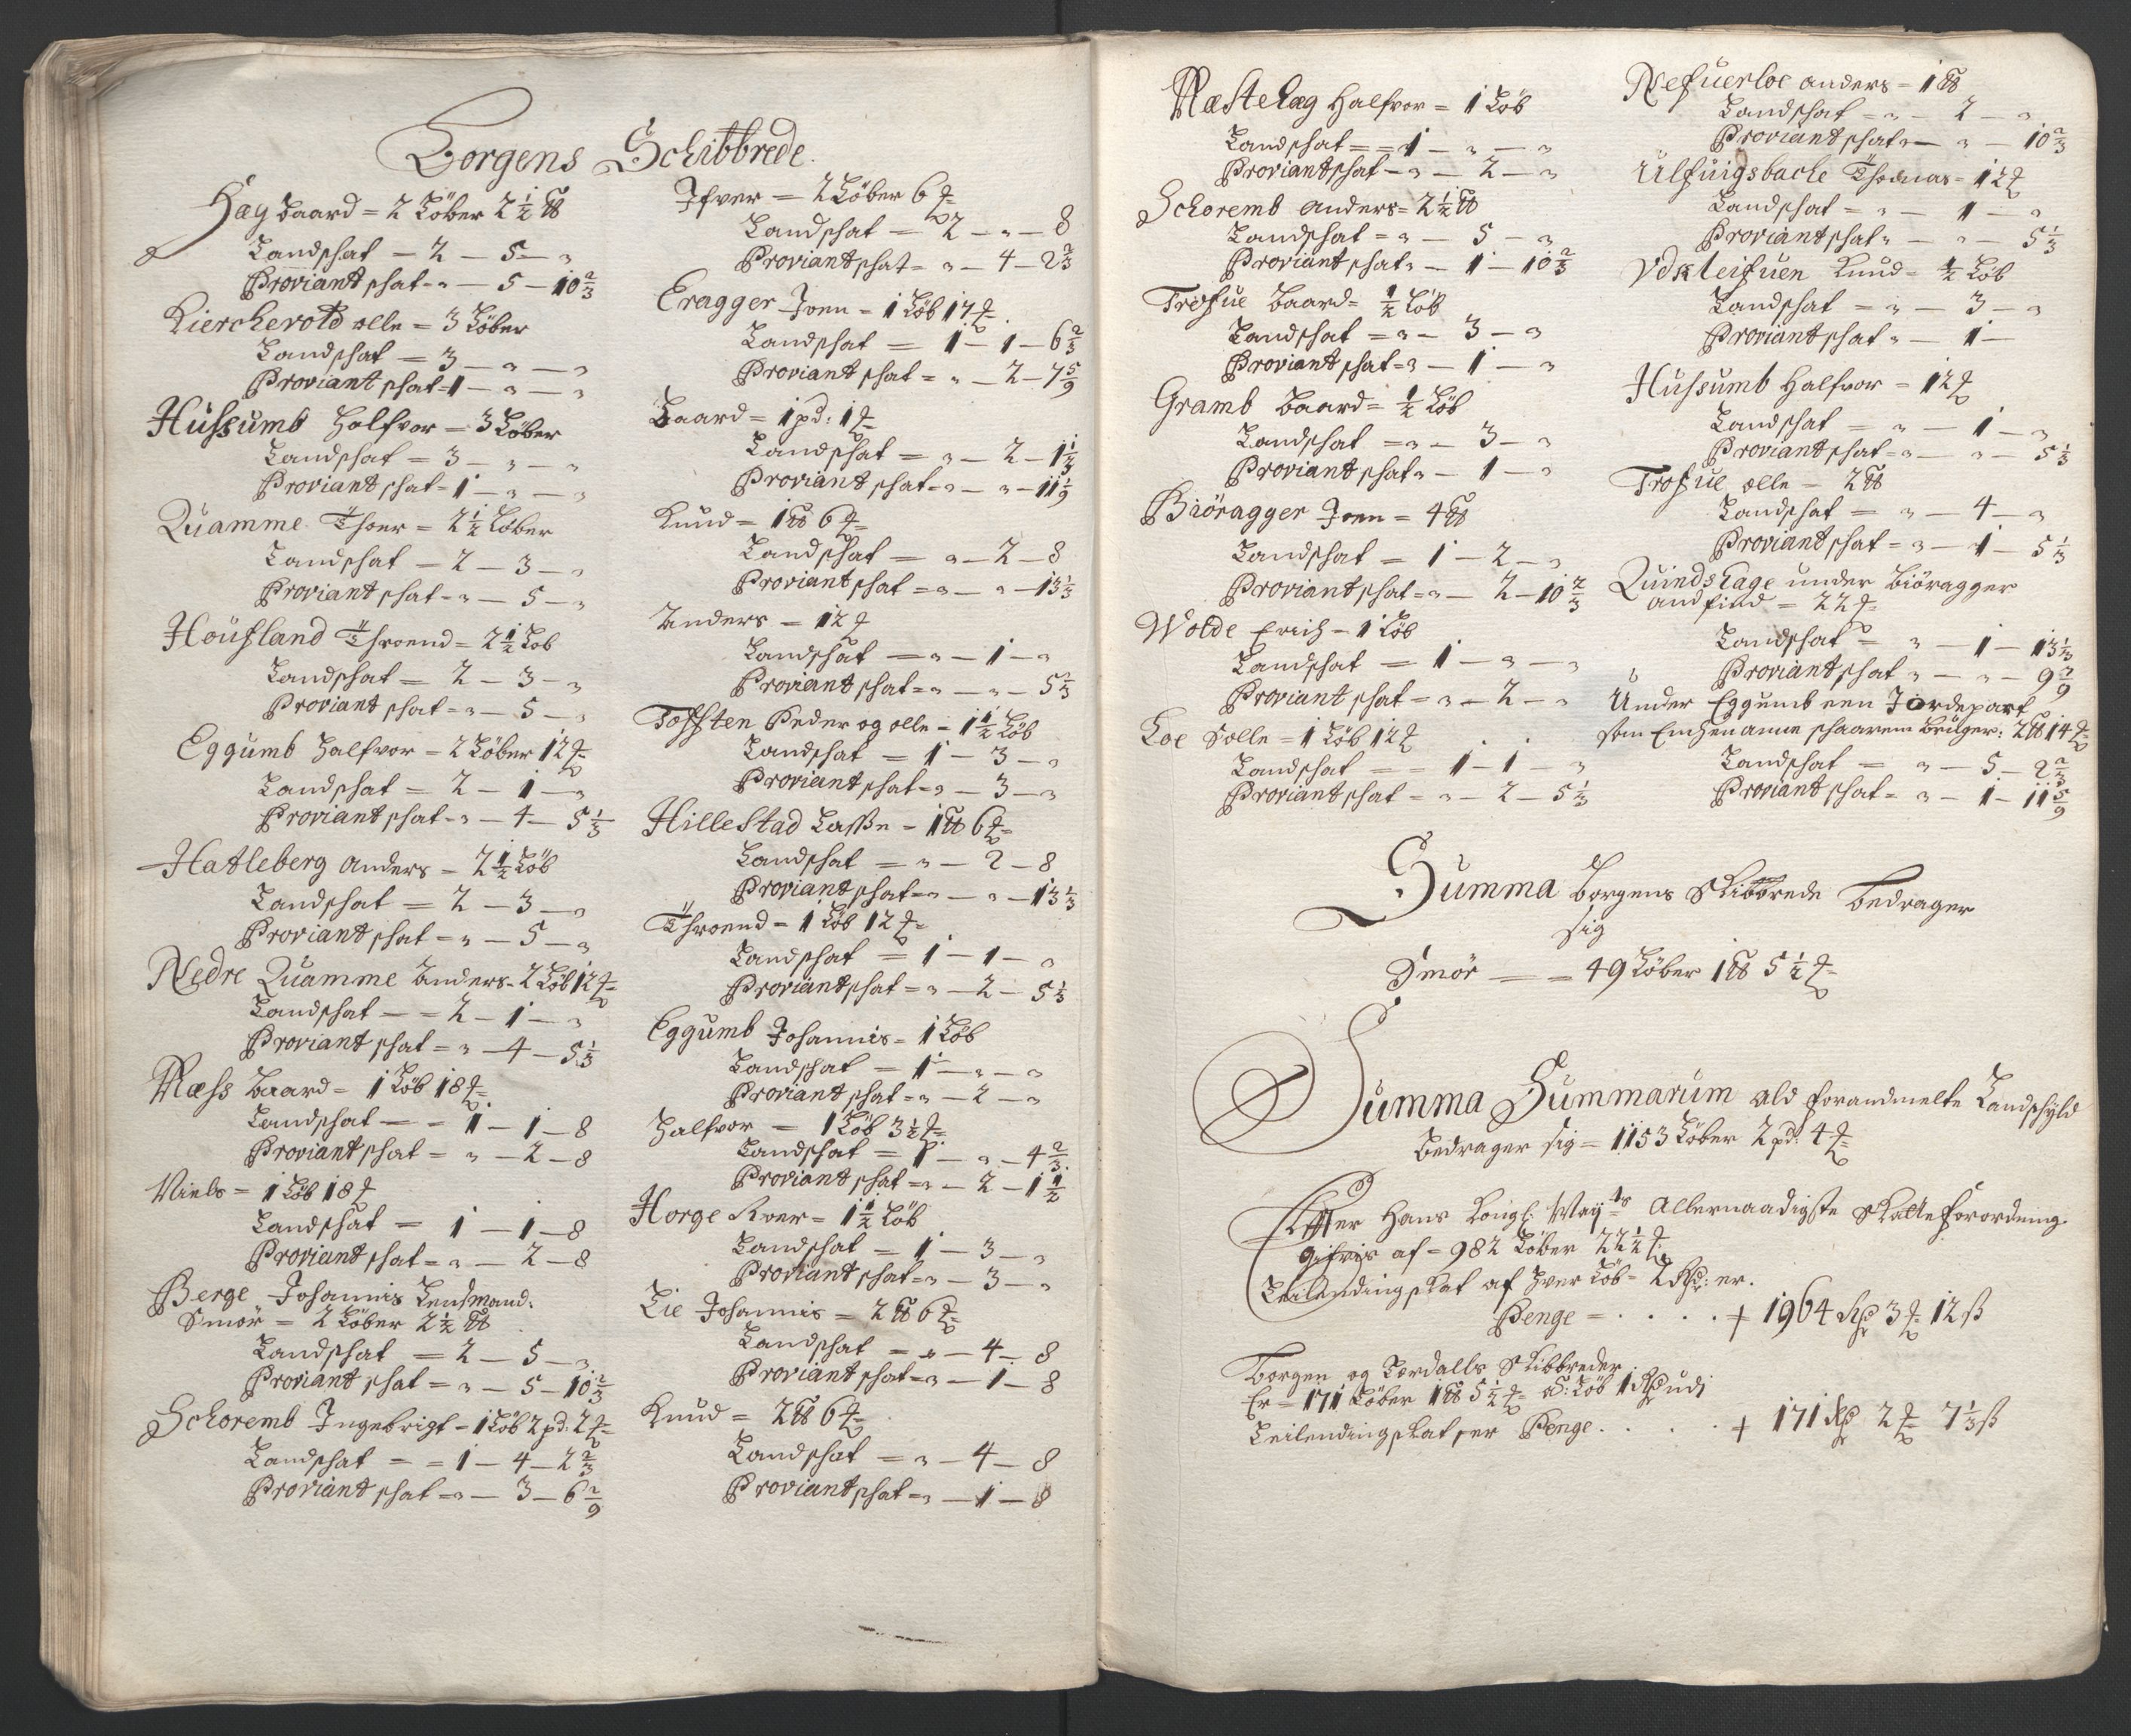 Borgens Schibbrede.
Hæg Baard = 2 Löber 2 1/2 ℔
Landschat — 2 — 5 — "
Proviant schat - " — 5 — 10 2/3
Kiercherold olle = 3 Löber
Landschat = 3 — " — "
Proviant schat = 1 — " — "
Hussumb Halfvor — 3 Löber
Landschat = 3 — " — "
Proviant schat - 1 — " — "
Quamme Thoer = 2 1/2 Löber
Landschat — 2 — 3 — "
Proviant schat - " — 5 — "
Houfland Throend = 2 1/2 Löb
Landschat — 2 — 3 — "
Proviant schat - " — 5 — "
Eggumb Halfvor — 2 Löber 12 ₰
Landschat = 2 — 1 — "
Proviant schat - " — 4 — 5 1/3
Hatleberg Anders — 2 1/2 Löb
Landschat = 2 — 3 — "
Proviant schat = " — 5 — "
Nedre Quamme Anders - 2 Löb 12 ₰
Landschat — = 2 — 1 — "
Proviant schat = " — 4 — 5 1/3
Næss Baard = 1 Löb 18 ₰
Landschat — = 1 — 1 — 8
Proviant schat = " — 2 — 8
Niels = 1 Löb 18 ₰
Landschat = 1 — 1 — 8
Proviant schat = " — 2 — 8
Berge Johannis Lensmand:
Smör = 2 Löber 2 1/2 ℔
Landschat = 2 — 5 — "
Proviant schat = " — 5 — 10 2/3
Schoremb Ingebrigt - 1 Löb 2 pd: 2 ₰
Landschat = = 1 — 4 — 2 2/3
Proviant schat = " — 3 — 6 2/9
Ifver — 2 Löber 6 ₰
Landschat — 2 — " — 8
Proviant schat = " — 4 — 2 2/3
Eragger Joen = 1 Löb 17 ₰
Landschat = 1 — 1 — 6 2/3
Proviant schat = " — 2 — 7 5/9
Baard = 1 pd: 1 ₰
Landschat = " — 2 — 1 1/3
Proviant schat = " — " — 11 1/9
Knud = 1 ℔ 6 ₰
Landschat = " — 2 — 8
Proviant schat = " — " — 13 1/3
Anders — 12 ₰
Landschat = " — 1 — "
Proviant schat = " — " — 5 1/3
Tofften Peder og olle = 1 1/2 Löb
Landschat = 1 — 3 — "
Proviant schat = " — 3 — "
Hillestad Lasse = 1 ℔ 6 ₰
Landschat = " — 2 — 8
Proviant schat = " — " — 13 1/3
Throend = 1 Löb 12 ₰
Landschat = 1 — 1 — "
Proviant schat = " — 2 — 5 1/3
Eggumb Johannis = 1 Löb
Landschat = 1 — " — "
Proviant schat = " — 2 — "
Halfvor = 1 Löb 3 1/2 ₰
Landschat = 1 — " — 4 2/3
Proviant schat = " — 2 — 1 1/2
Horge Iver = 1 1/2 Löb
Landschat = 1 — 3 — "
Proviant schat = " — 3 — "
Lie Johannis = 2 ℔ 6 ₰
Landschat = " — 4 — 8
Proviant schat = " — 1 — 8
Knud = 2 ℔ 6 ₰
Landschat = " — 4 — 8
Proviant schat = " — 1 — 8
Næstelag Halfvor = 1 Löb
Landschat = = 1 — " — "
Proviant schat - " — 2 — "
Schoremb Anders = 2 1/2 ℔
Landschat = " — 5 — "
Proviant schat " — 1 — 10 2/3
Trosue Baard = 1/2 Löb
Landschat = " — 3 — "
Proviant schat = " — 1 — "
Gramb Baard = 1/2 Löb
Landschat = " — 3 — "
Proviant schat " — 1 — "
Biöragger Joen = 4 ℔
Landschat = 1 — 2 — "
Proviant schat = " — 2 — 10 2/3
Wolde Erich = 1 Löb
Landschat = 1 — " — "
Proviant schat = " — 2 — "
Loe Solle = 1 Löb 12 ₰
Landschat = = 1 — 1 — "
Proviant schat = " — 2 — 5 1/3
Nefuerloe anders = 1 ℔
Landschat = " — 2 — "
Proviant schat " — " — 10 2/3
Ulfuigsbache Thomas = 12 ₰
Landschat = " — 1 — "
Proviant schat " — " — 5 1/3
Udkleifuen Knud = 1/2 Löb
Landschat = " — 3 — "
Proviant schat " — 1 —
Hussumb Halfvor = 12 ₰
Landschat = " — 1 — "
Proviant schat = " — " — 5 1/3
Trosue olle = 2 ℔
Landschat = " — 4 — "
Proviant schat = " — 1 — 5 1/3
Quindshage under Biöragger
andfind = 22 ₰
Landschat = " — 1 — 13 1/3
Proviant schat " — " — 9 7/9
Under Eggumb een Jordepart
som Enchen anne schaarem brüger: 2 ℔ 14 ₰
Landschat = " — 5 — 2 2/3
Proviant schat = " — 1 — 11 5/9
Summa Borgens Skibbrede bedrager
sig
Smör — = 49 Löber 1 ℔ 5 1/2 ₰
Summa Summarum ald forandmelte Landschyld
bedrager sig = 1153 Löber 2 pd: 4 ₰
Efter Hans Kongl: May:ts Allernaadigste Skatteforordning
gifvis af = 982 Löber 22 1/2 ₰
Leilendingskat af Hver Löb = 2 Rdr: er.
Penge = . . . . + 1964 Rdr 3 ₰ 12 ß
Borgen og Lærdalls Skibbreder
Er = 171 Löber 1 ℔ 5 1/2 ₰ af: Löb 1 Rdr udj
Leilendingskat er Penge . . . . + 171 Rdr 2 ₰ 7 1/3 ß